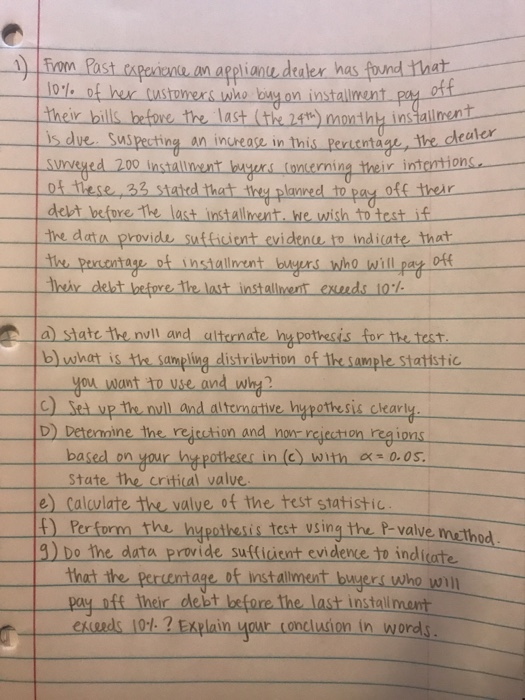 1) From Past experience an appliance dealer has found that
10% of her customers who buy on installment pay off
their bills before the last (the 24th) monthly installment
is due. Suspecting an increase in this percentage, the dealer
surveyed 200 installment buyers concerning their intentions.
of these, 33 stated that they planned to pay off their
debt before the last installment. We wish to test if
the data provide sufficient evidence to indicate that
the percentage of installment buyers who will pay off
their debt before the last installment exceeds 10%.
a) state the null and alternate hypothesis for the test.
b) what is the sampling distribution of the sample statistic
you want to use and why?
c) Set up the null and alternative hypothesis clearly.
D) Determine the rejection and non-rejection regions
based on your hypotheses in (c) with α = 0.05.
State the critical value.
e) Calculate the value of the test statistic.
f) Perform the hypothesis test using the P-value method.
g) Do the data provide sufficient evidence to indicate
that the percentage of installment buyers who will
pay off their debt before the last installment
exceeds 10%.? Explain your conclusion in words.